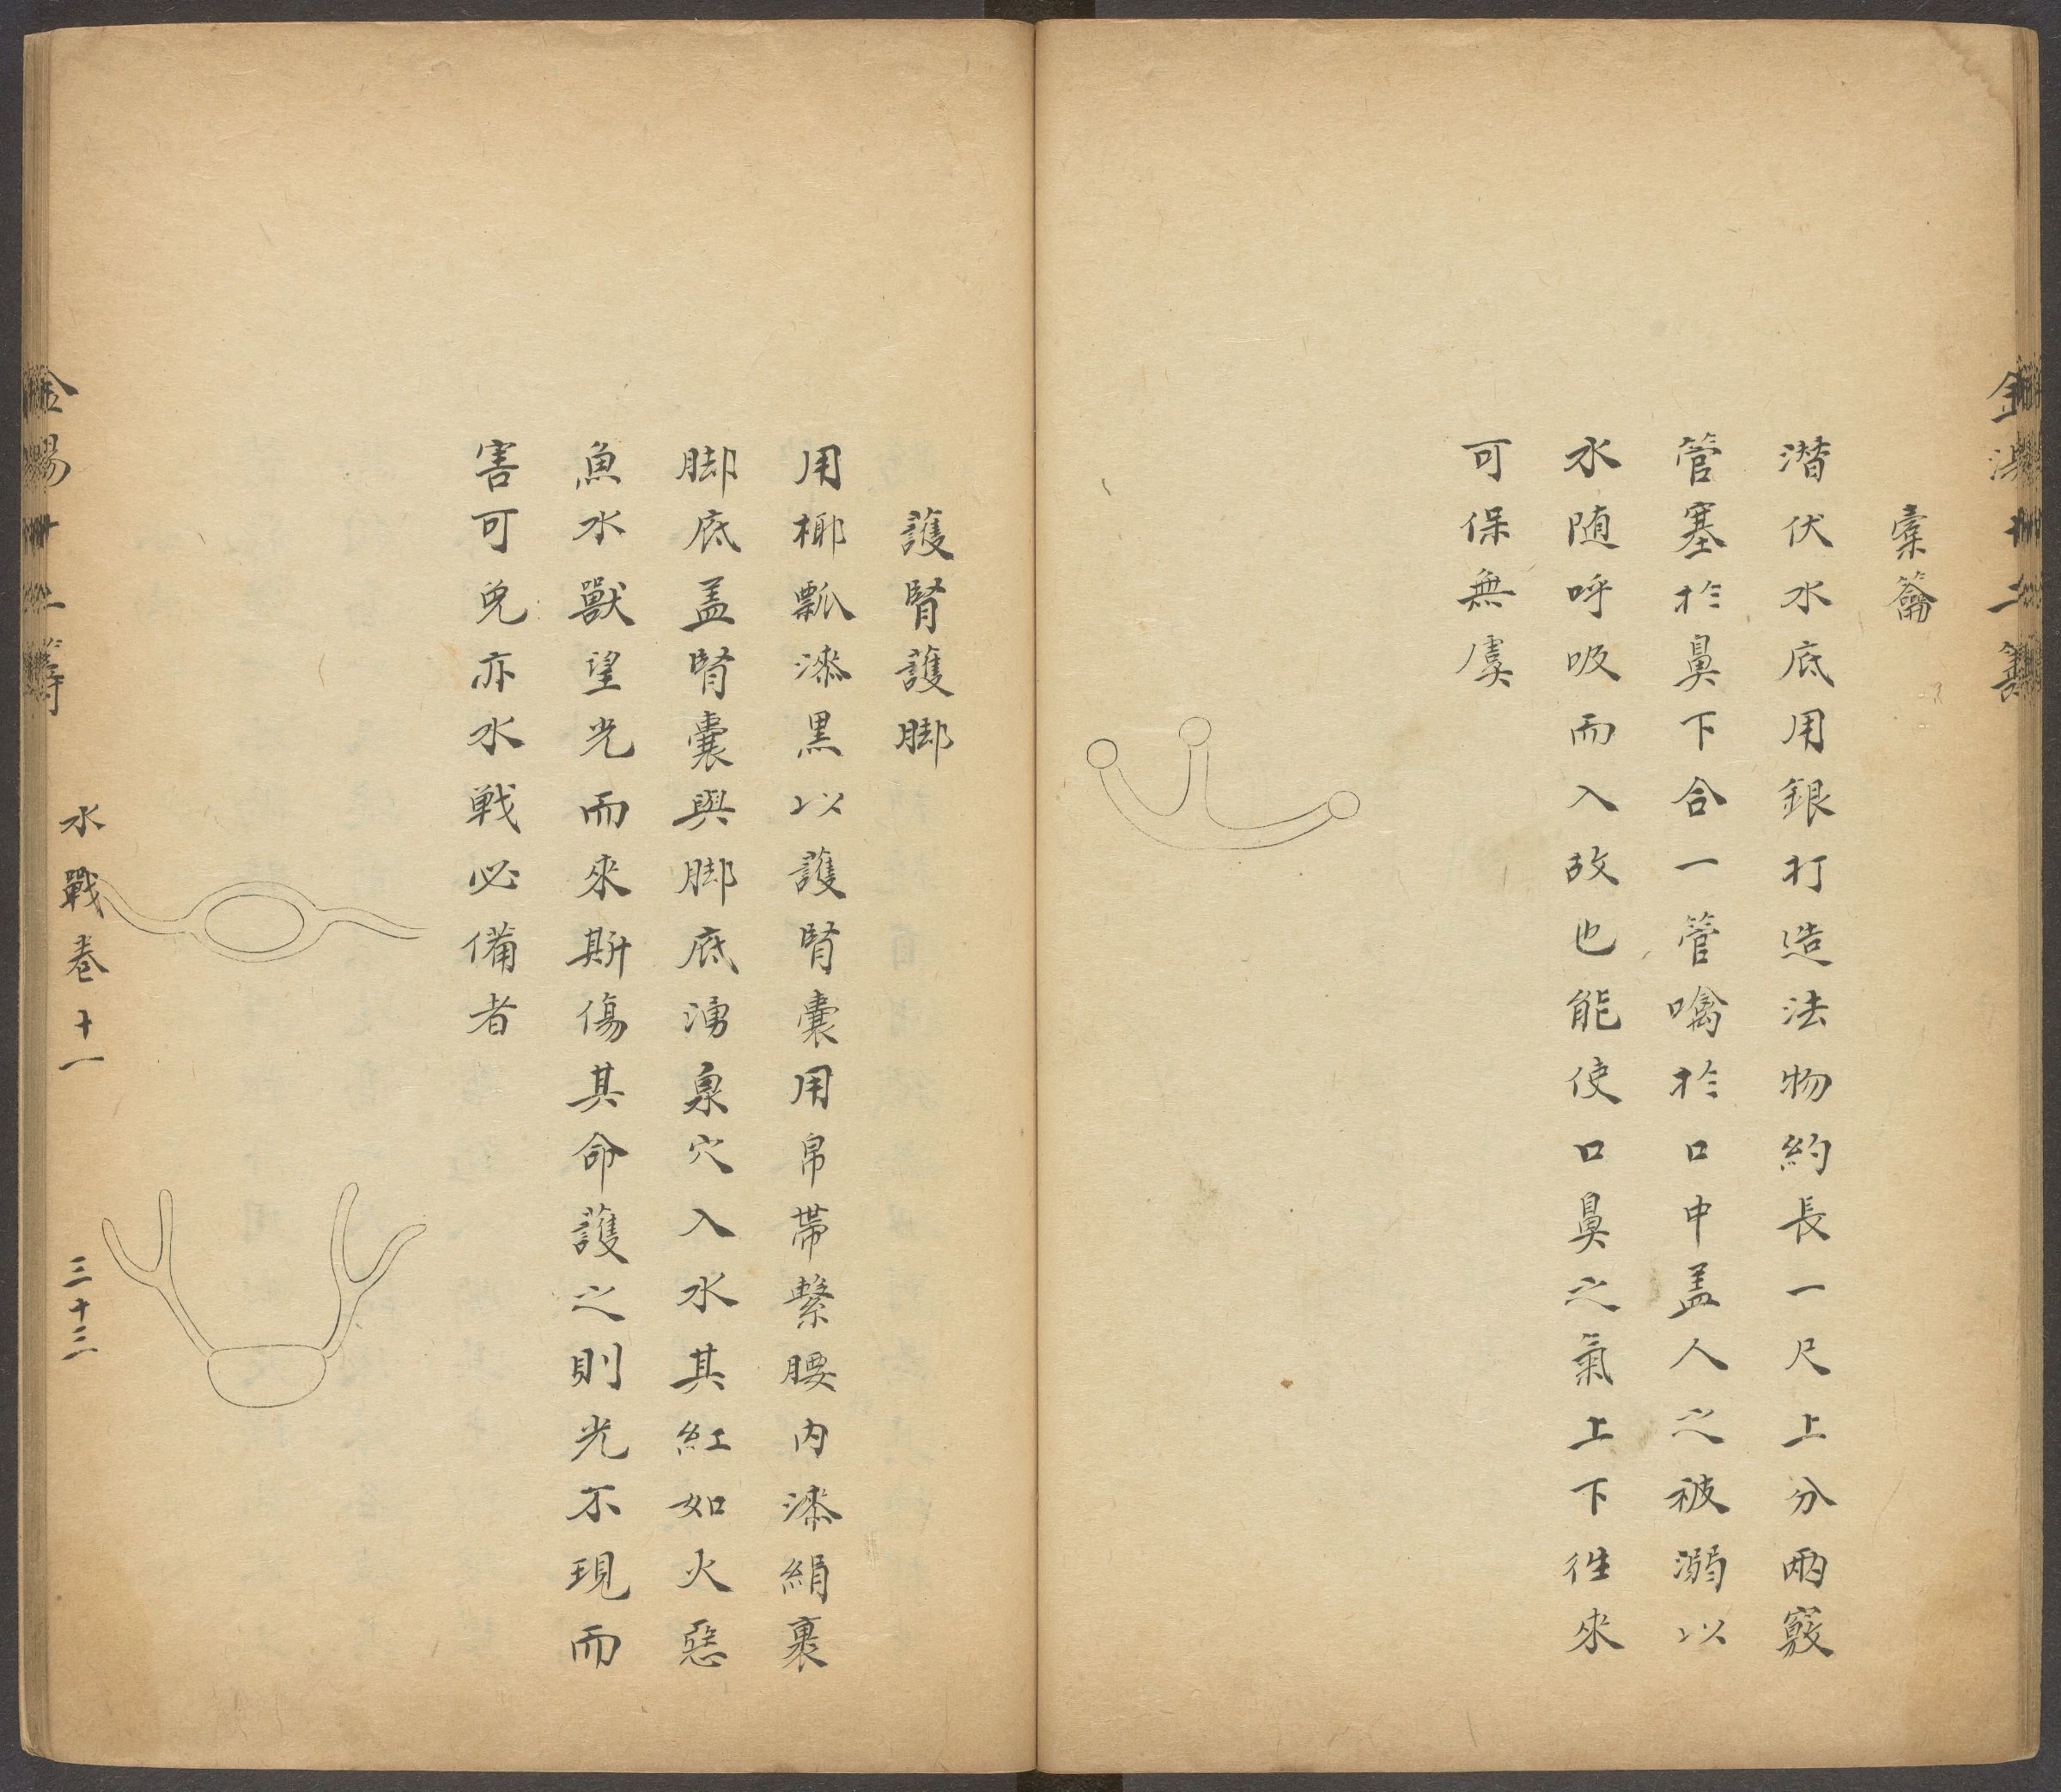 金湯十二籌
橐籥
潛伏水底用銀打造法物約長一尺上分兩竅
管塞於鼻下合一管噙於口中盖人之被溺以
水随呼吸而入故也能使口鼻之氣上下徃來
可保無虞
護腎護脚
用椰瓢漆黒以護腎囊用帛帶繫腰内漆絹裹
脚底盖腎囊與脚底湧泉穴入水其紅如火惡
魚水獸望光而來斯傷其命護之則光不現而
害可免亦水戦必備者
金湯十二籌
水戰卷十一
三十三